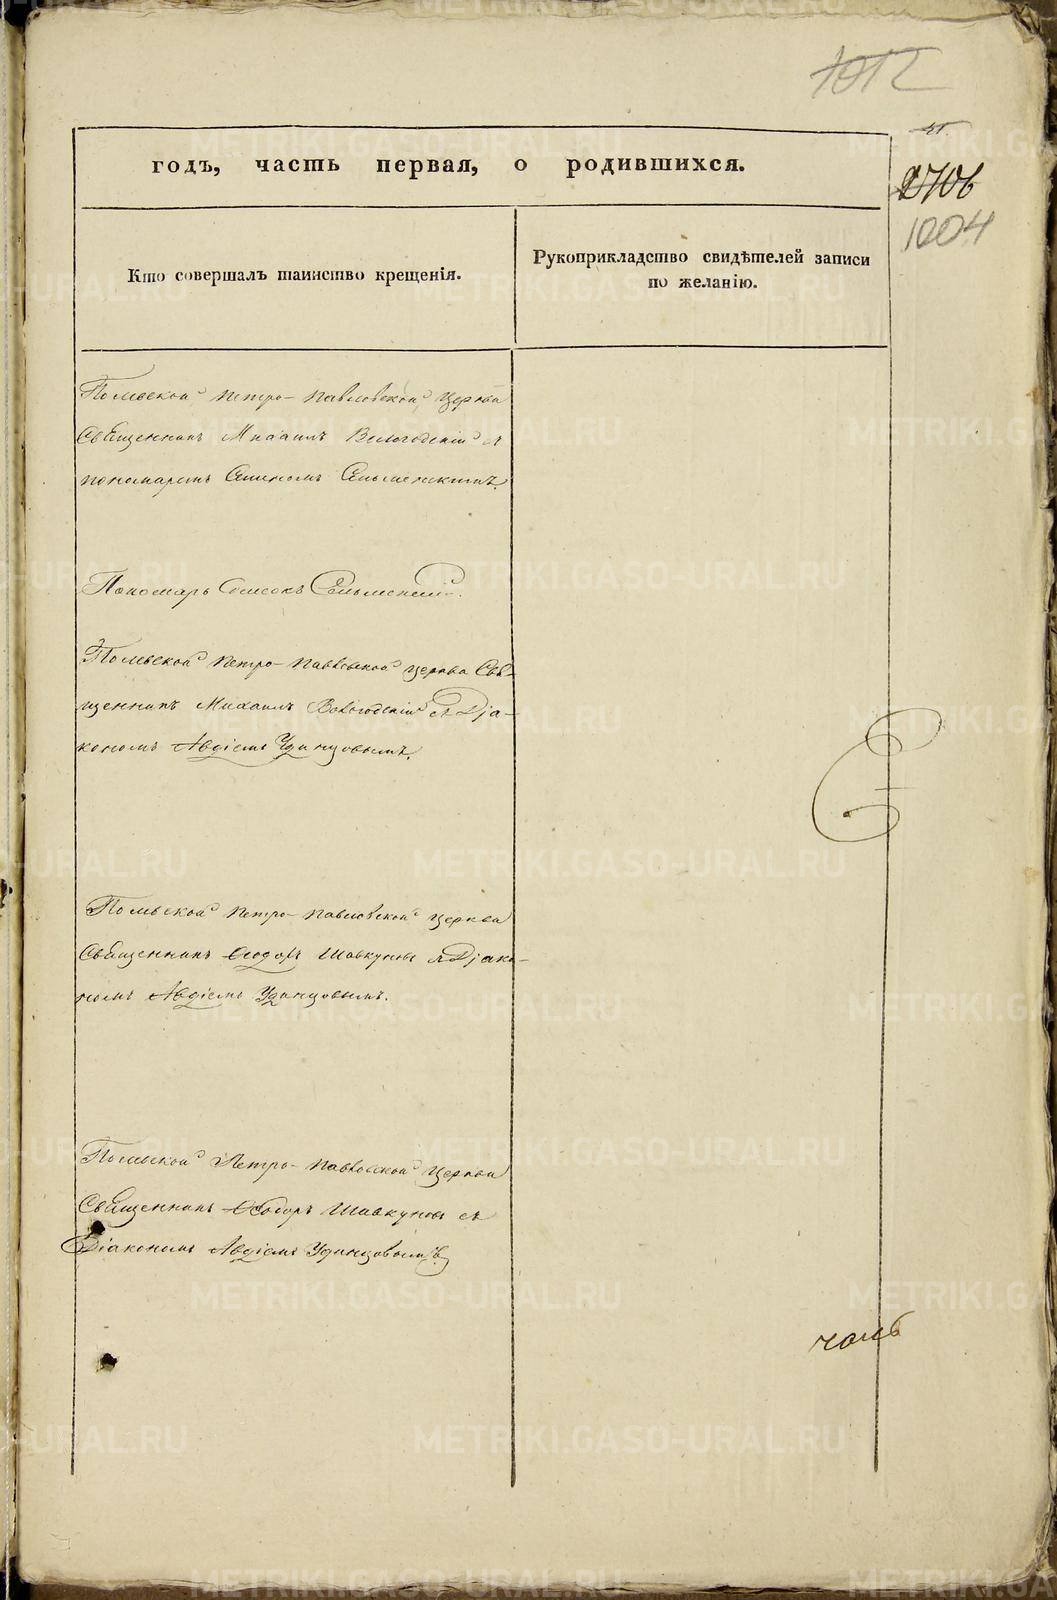 1012
2706
1004
годъ, часть первая, о родившихся.
Кто совершалъ таинство крещенія.
Рукоприкладство свидѣтелей записи
по желанію.
Полевской Петро-Павловской Церкви
Священникъ Михаилъ Вологодскій съ
пономаремъ
Пономарь
Полевской Петро-Павловской церкви Свя-
щенникъ Михаилъ Вологодскій съ Діа-
кономъ Авдіемъ Удинцовымъ.
Полевской Петро-Павловской церкви
Священникъ Ѳеодоръ Шавкуновъ съ Діако-
номъ Авдіемъ Удинцовымъ.
Полевской Петро-Павловской Церкви
Священникъ Ѳеодоръ Шавкуновъ съ
Діакономъ Авдіемъ Удинцовымъ
METRIKI.GASO-URAL.RU